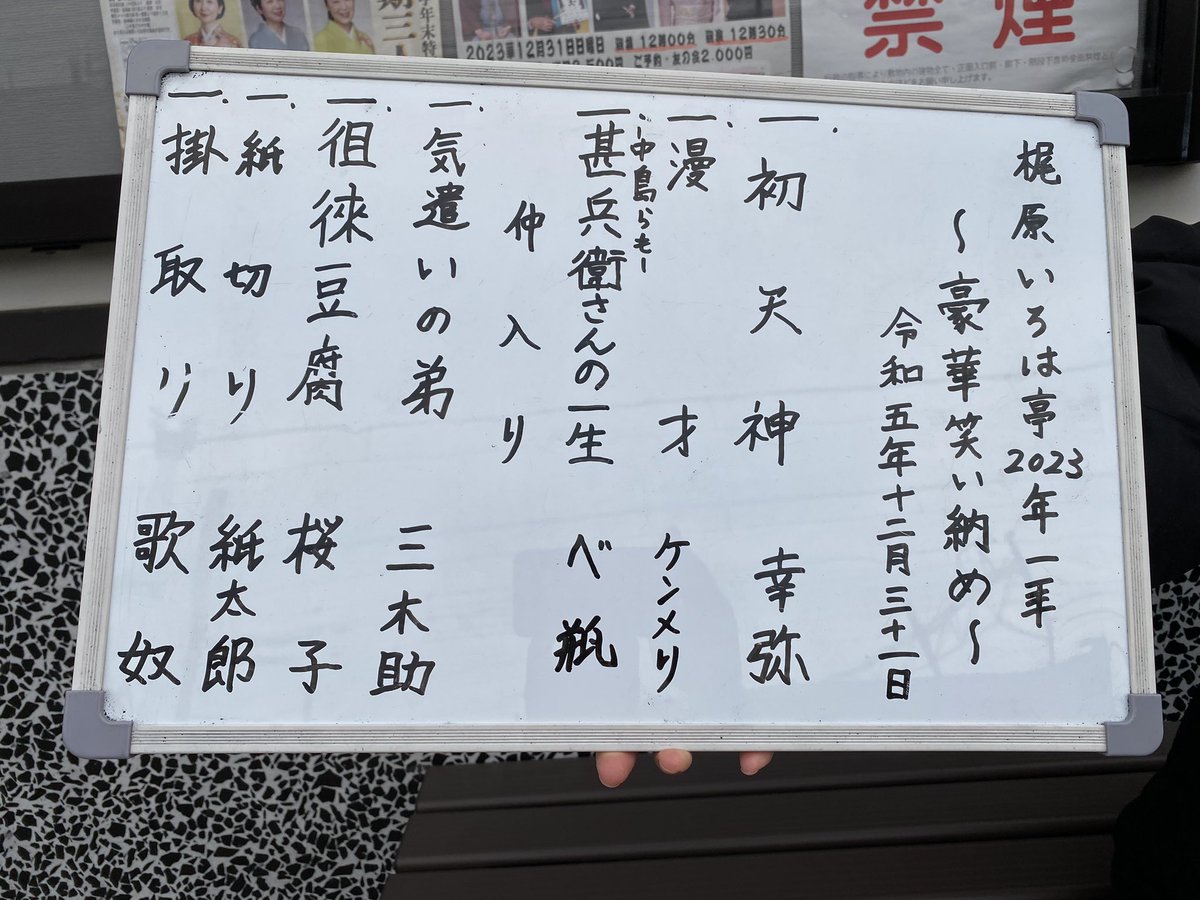 梶原いろは亭2023年一年
～豪華笑い納め～
令和五年十二月三十一日
一. 初天神 幸弥
一. 漫才 ケンメリ
一. 甚兵衛さんの一生 べ瓶
ー中島らもー
仲入り
一. 気遣いの弟 三木助
一. 徂徠豆腐 桜子
一. 紙切り 紙太郎
一. 掛取り 歌奴
2023年12月31日日曜日
ご予約・友の会2,000円
禁煙